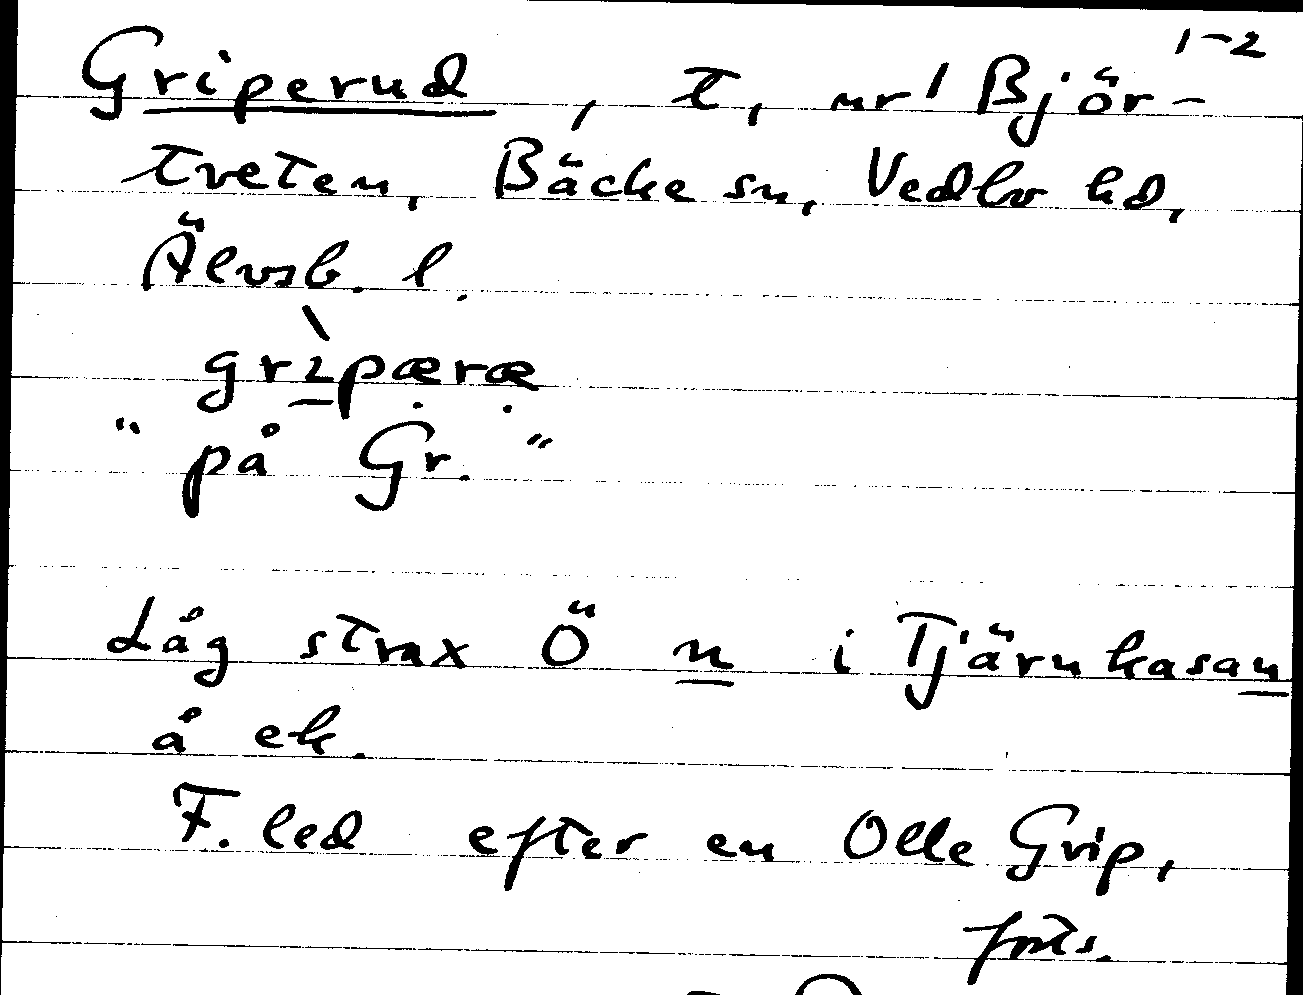 1-2
Griperud, t, nr 1 Björ-
tveten, Bäcke sn, Vedbo hd,
Älvsb. l.
grìpæræ
"på Gr."
Låg strax Ö n i Tjärnkasan
å ek.
F. led efter en Olle Grip,
forts.